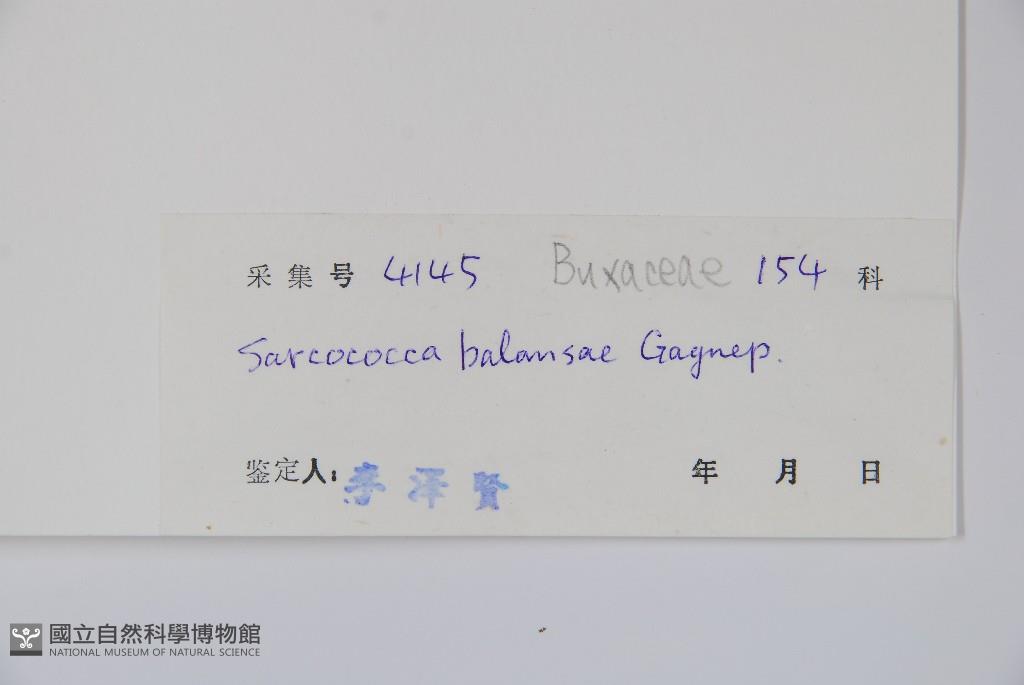 采集号 4145 Buxaceae 154 科
Sarcococca balansae Gagnep.
鉴定人: 李泽賢 年 月 日
國立自然科學博物館
NATIONAL MUSEUM OF NATURAL SCIENCE